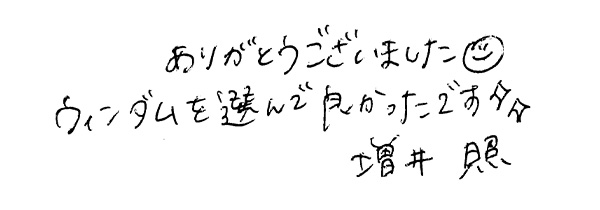 ありがとうございました☺
ウィンダムを選んで良かったです☆☆
増井 照